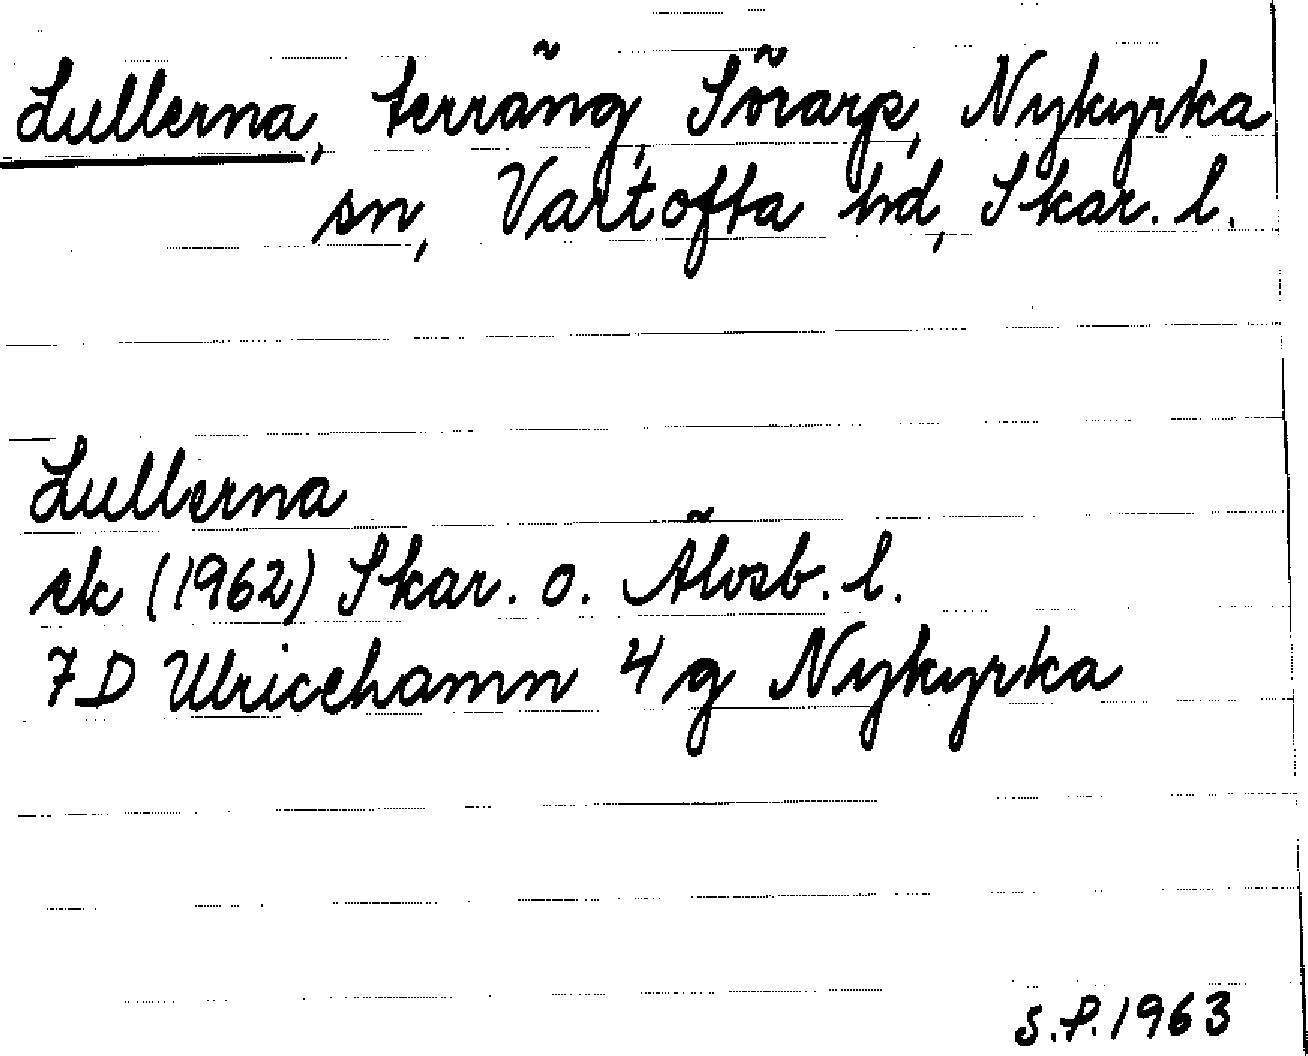 Lullerna, terräng, Sörarp, Nykyrka
sn, Vartofta hd, Skar. l.
Lullerna
ek (1962) Skar. o. Älvsb. l.
7D Ulricehamn 4g Nykyrka
S.P. 1963